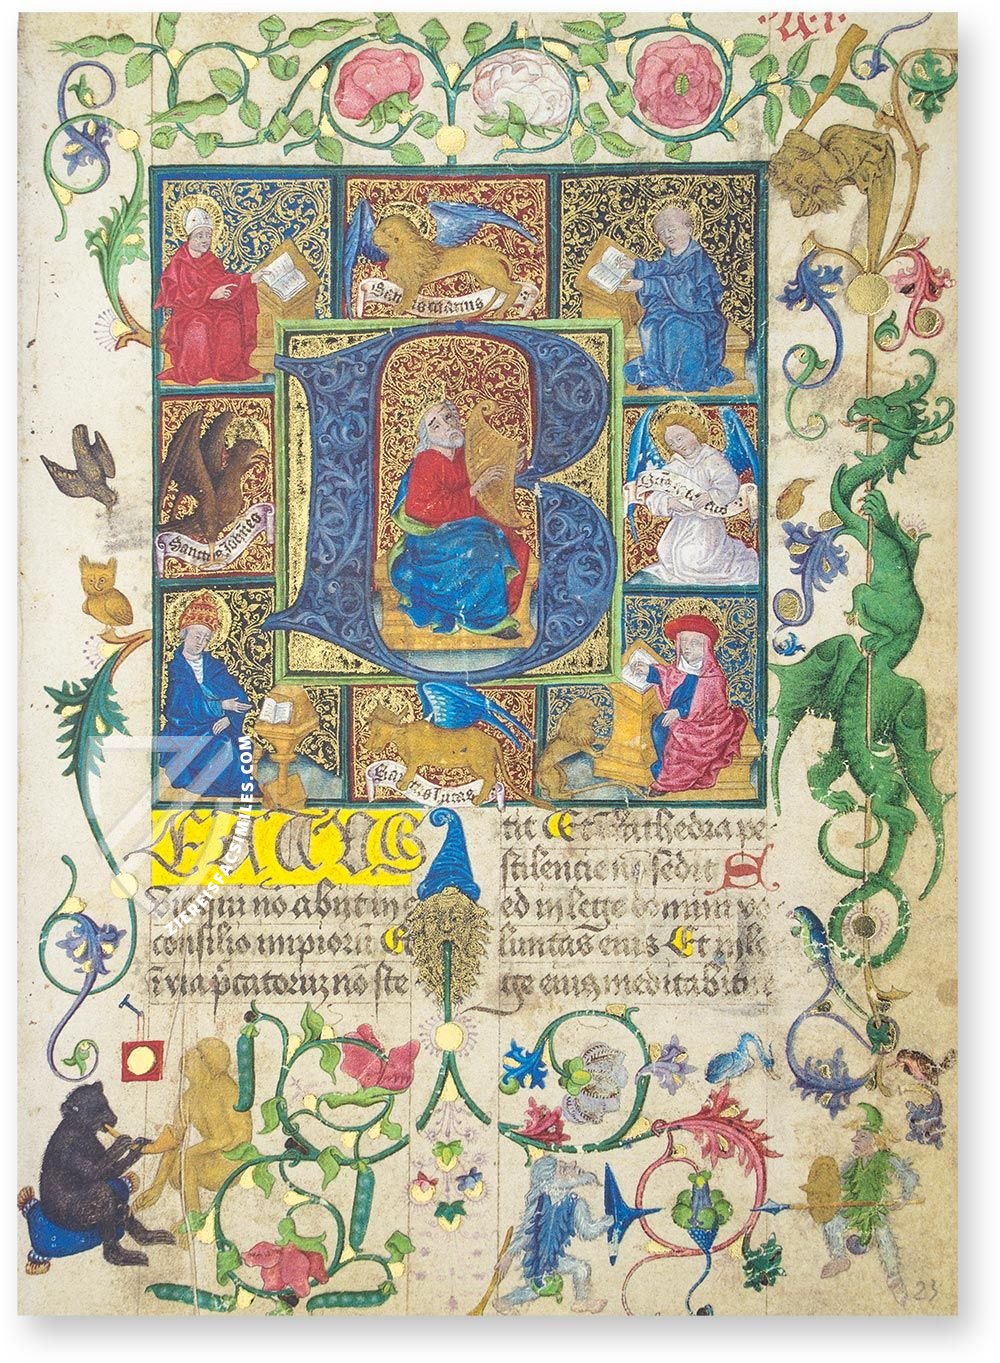 A · i ·
Sanctus marcus
Sanctus Johānes
Sanctus lucas
B
EATUS
vir qui nō abiit in
consilio impiorū Et
ī via pctatoruz nō ste
tit Et ī cathedra pe
stilencie nō sedit S
ed in lege domini vo
luntas eius Et in le
ge eius meditabitur
ZIEREISFACSIMILES.COM
23